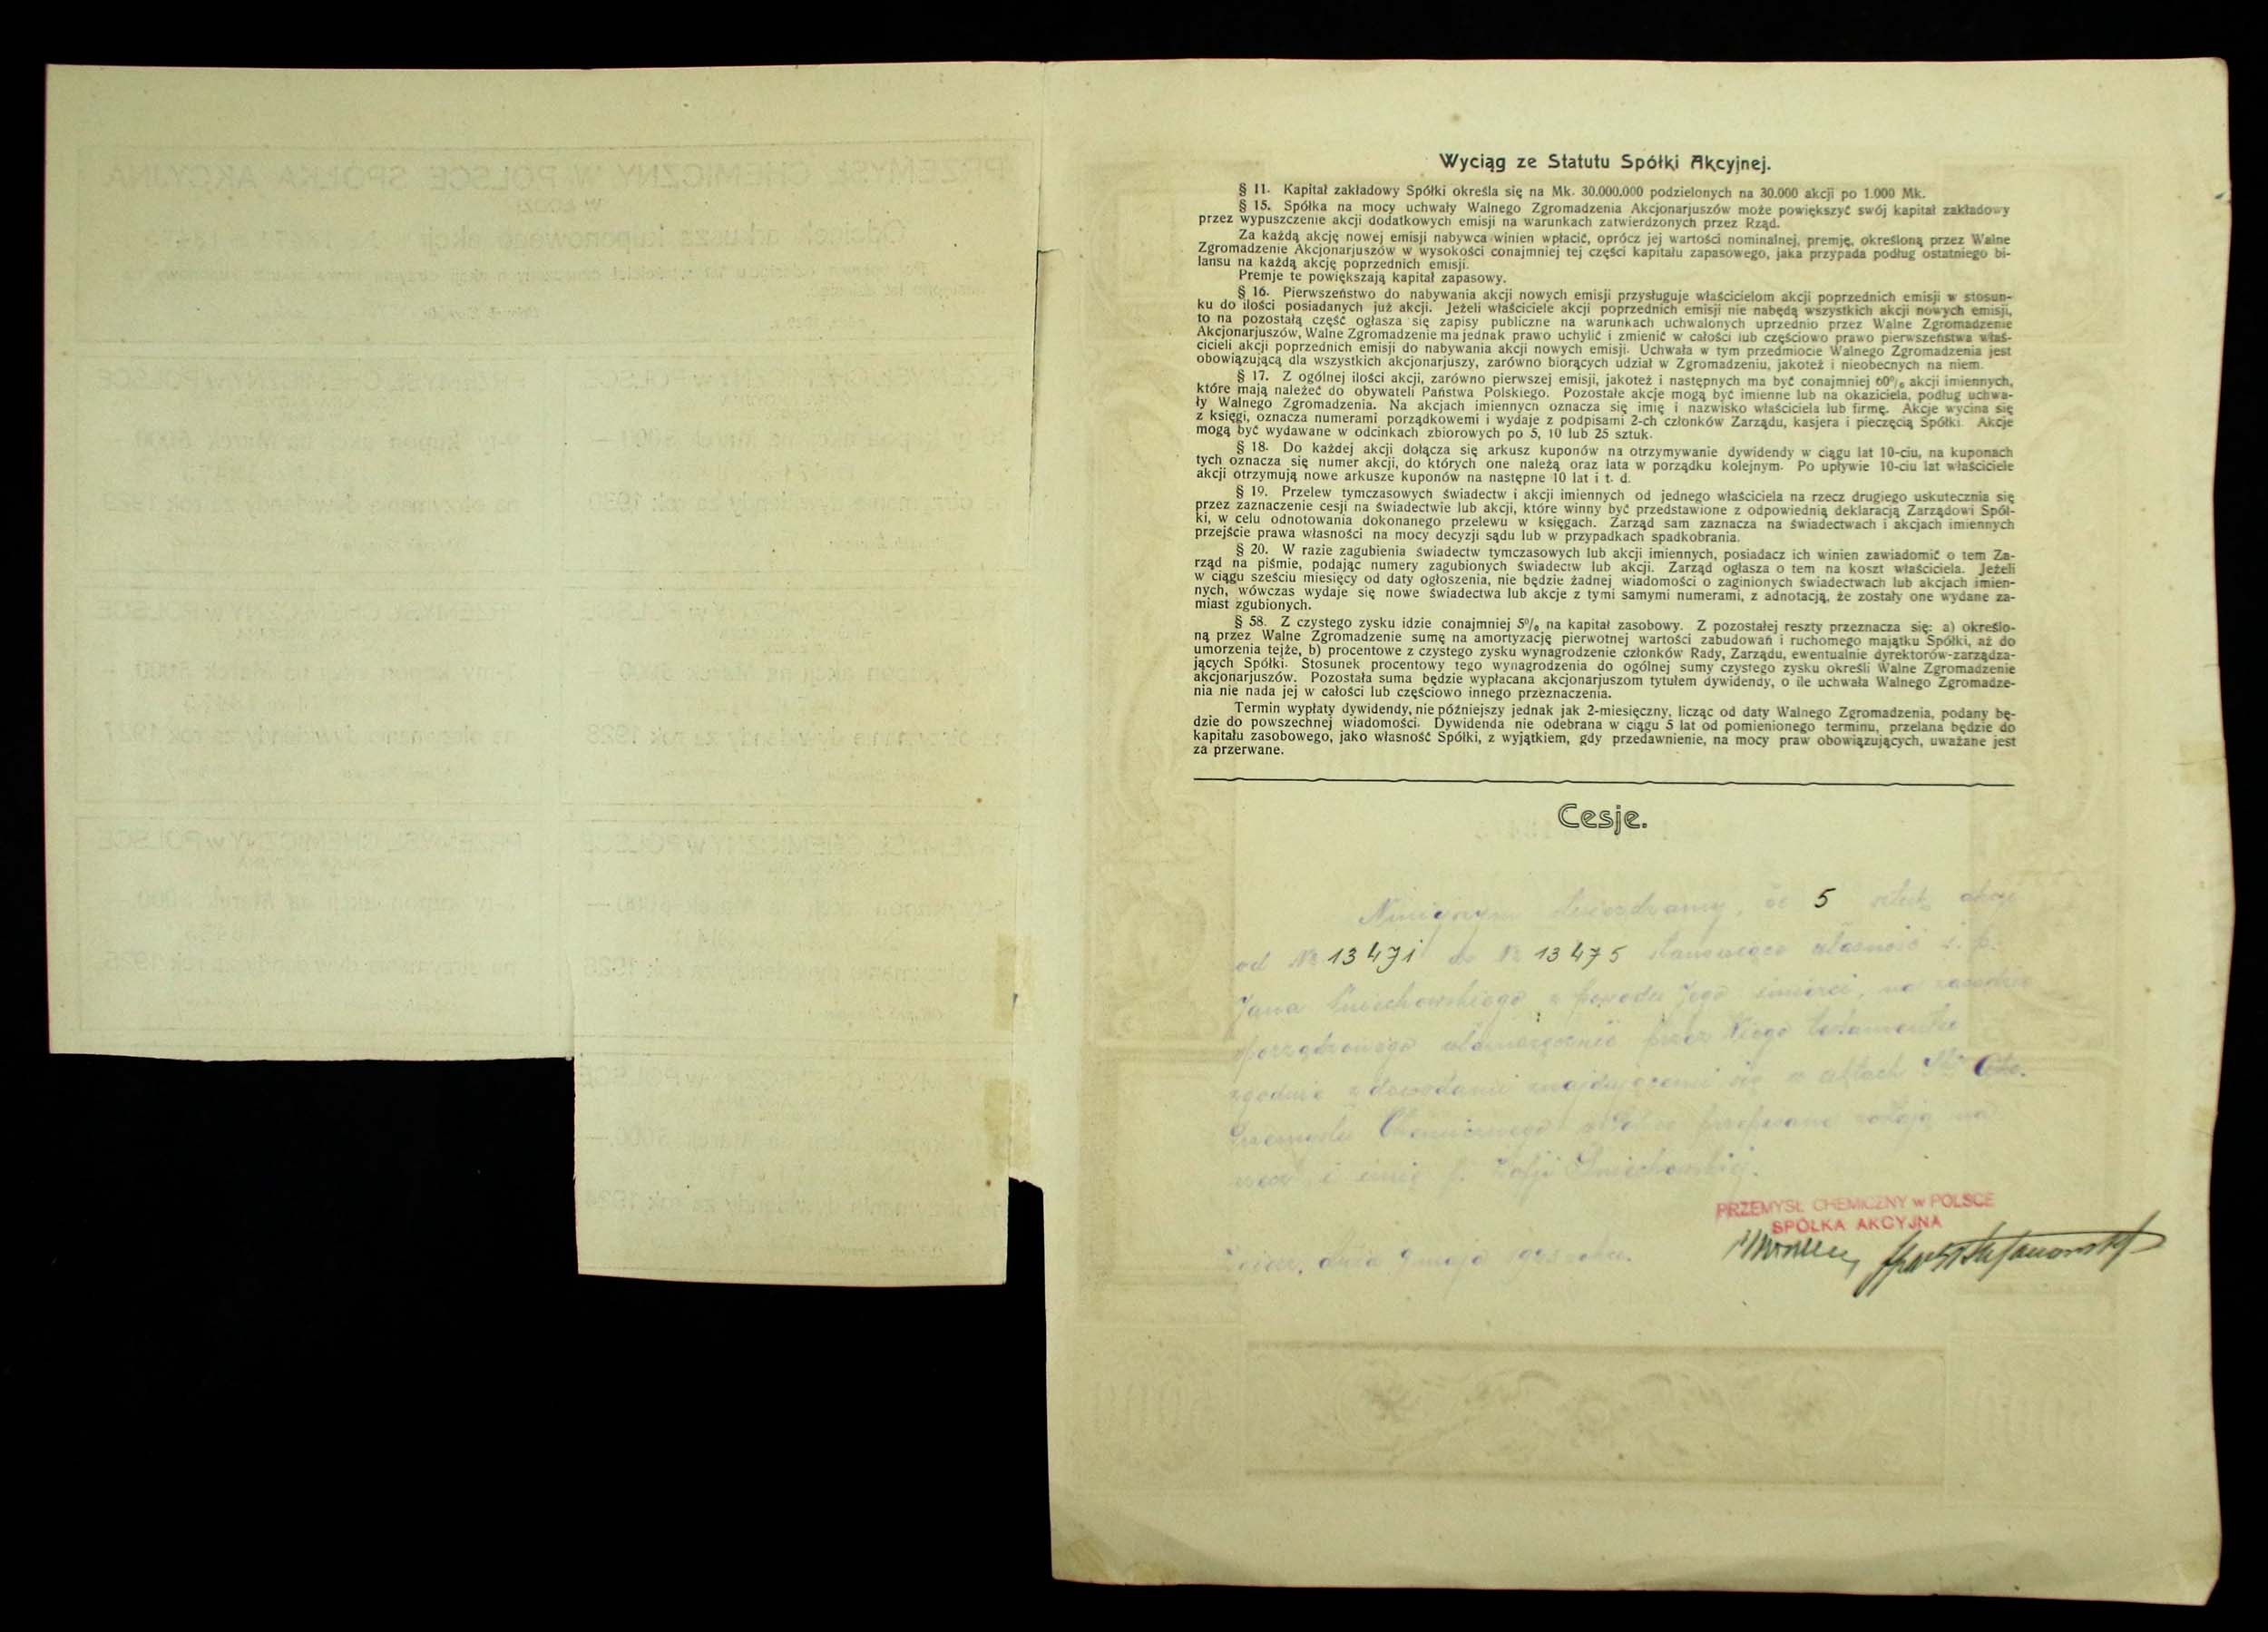 Wyciąg ze Statutu Spółki Akcyjnej.
§ 11. Kapitał zakładowy Spółki określa się na Mk. 30.000.000 podzielonych na 30.000 akcji po 1.000 Mk.
§ 15. Spółka na mocy uchwały Walnego Zgromadzenia Akcjonarjuszów może powiększyć swój kapitał zakładowy
przez wypuszczenie akcji dodatkowych emisji na warunkach zatwierdzonych przez Rząd.
Za każdą akcję nowej emisji nabywca winien wpłacić, oprócz jej wartości nominalnej, premję, określoną przez Walne
Zgromadzenie Akcjonarjuszów w wysokości conajmniej tej części kapitału zapasowego, jaka przypada podług ostatniego bi-
lansu na każdą akcję poprzednich emisji.
Premje te powiększają kapitał zapasowy.
§ 16. Pierwszeństwo do nabywania akcji nowych emisji przysługuje właścicielom akcji poprzednich emisji w stosun-
ku do ilości posiadanych już akcji. Jeżeli właściciele akcji poprzednich emisji nie nabędą wszystkich akcji nowych emisji,
to na pozostałą część ogłasza się zapisy publiczne na warunkach uchwalonych uprzednio przez Walne Zgromadzenie
Akcjonarjuszów, Walne Zgromadzenie ma jednak prawo uchylić i zmienić w całości lub częściowo prawo pierwszeństwa właś-
cicieli akcji poprzednich emisji do nabywania akcji nowych emisji. Uchwała w tym przedmiocie Walnego Zgromadzenia jest
obowiązującą dla wszystkich akcjonarjuszy, zarówno biorących udział w Zgromadzeniu, jakoteż i nieobecnych na niem.
§ 17. Z ogólnej ilości akcji, zarówno pierwszej emisji, jakoteż i następnych ma być conajmniej 60% akcji imiennych,
które mają należeć do obywateli Państwa Polskiego. Pozostałe akcje mogą być imienne lub na okaziciela, podług uchwa-
ły Walnego Zgromadzenia. Na akcjach imiennych oznacza się imię i nazwisko właściciela lub firmę. Akcje wycina się
z księgi, oznacza numerami porządkowemi i wydaje z podpisami 2-ch członków Zarządu, kasjera i pieczęcią Spółki. Akcje
mogą być wydawane w odcinkach zbiorowych po 5, 10 lub 25 sztuk.
§ 18. Do każdej akcji dołącza się arkusz kuponów na otrzymywanie dywidendy w ciągu lat 10-ciu, na kuponach
tych oznacza się numer akcji, do których one należą oraz lata w porządku kolejnym. Po upływie 10-ciu lat właściciele
akcji otrzymują nowe arkusze kuponów na następne 10 lat i t. d.
§ 19. Przelew tymczasowych świadectw i akcji imiennych od jednego właściciela na rzecz drugiego uskutecznia się
przez zaznaczenie cesji na świadectwie lub akcji, które winny być przedstawione z odpowiednią deklaracją Zarządowi Spół-
ki, w celu odnotowania dokonanego przelewu w księgach. Zarząd sam zaznacza na świadectwach i akcjach imiennych
przejście prawa własności na mocy decyzji sądu lub w przypadkach spadkobrania.
§ 20. W razie zagubienia świadectw tymczasowych lub akcji imiennych, posiadacz ich winien zawiadomić o tem Za-
rząd na piśmie, podając numery zagubionych świadectw lub akcji. Zarząd ogłasza o tem na koszt właściciela. Jeżeli
w ciągu sześciu miesięcy od daty ogłoszenia, nie będzie żadnej wiadomości o zaginionych świadectwach lub akcjach imien-
nych, wówczas wydaje się nowe świadectwa lub akcje z tymi samymi numerami, z adnotacją, że zostały one wydane za-
miast zgubionych.
§ 58. Z czystego zysku idzie conajmniej 5% na kapitał zasobowy. Z pozostałej reszty przeznacza się: a) określo-
ną przez Walne Zgromadzenie sumę na amortyzację pierwotnej wartości zabudowań i ruchomego majątku Spółki, aż do
umorzenia tejże, b) procentowe z czystego zysku wynagrodzenie członków Rady, Zarządu, ewentualnie dyrektorów-zarządza-
jących Spółki. Stosunek procentowy tego wynagrodzenia do ogólnej sumy czystego zysku określi Walne Zgromadzenie
akcjonarjuszów. Pozostała suma będzie wypłacana akcjonarjuszom tytułem dywidendy, o ile uchwała Walnego Zgromadze-
nia nie nada jej w całości lub częściowo innego przeznaczenia.
Termin wypłaty dywidendy, nie późniejszy jednak jak 2-miesięczny, licząc od daty Walnego Zgromadzenia, podany bę-
dzie do powszechnej wiadomości. Dywidenda nie odebrana w ciągu 5 lat od pomienionego terminu, przelana będzie do
kapitału zasobowego, jako własność Spółki, z wyjątkiem, gdy przedawnienie, na mocy praw obowiązujących, uważane jest
za przerwane.
Cesje.
Niniejszym stwierdzamy, że 5 sztuk akcji
od № 13471 do № 13475 stanowiące własność ś. p.
Jana Śniechowskiego z powodu Jego śmierci, na zasadzie
sporządzonego własnoręcznie przez Niego testamentu
zgodnie z dowodami znajdującemi się w aktach
Przemysłu Chemicznego w Polsce przepisane zostają na
rzecz i imię p. Zofji Śniechowskiej.
PRZEMYSŁ CHEMICZNY w POLSCE
SPÓŁKA AKCYJNA
dnia 9 maja roku.